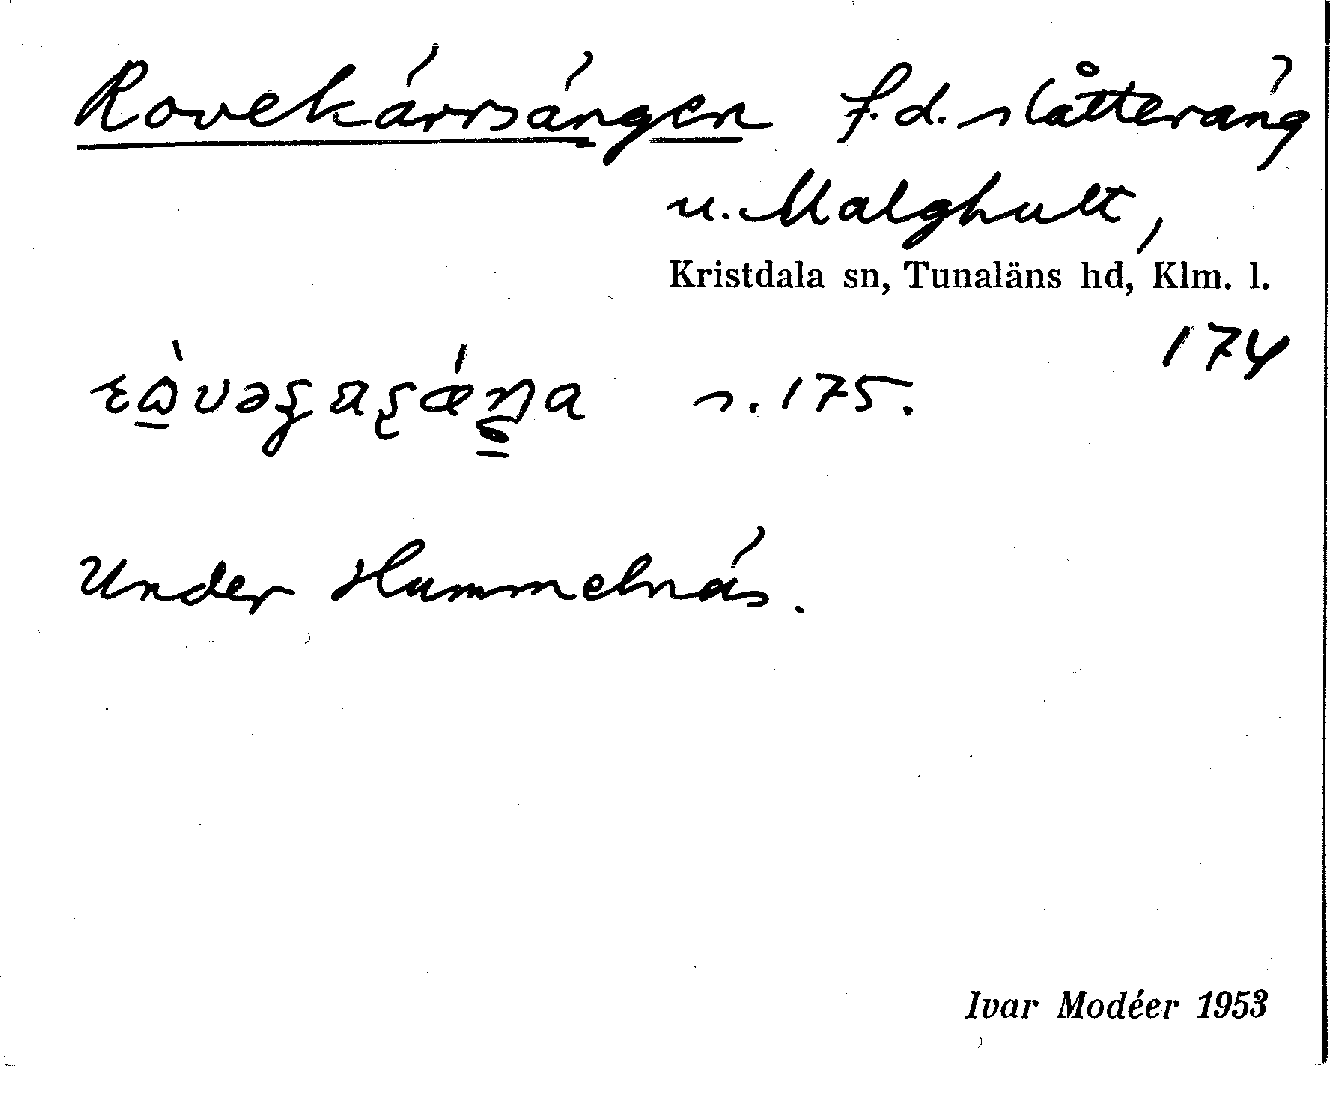 Rovekärrsängen f.d. slåtteräng
u. Malghult,
Kristdala sn, Tunaläns hd, Klm. l.
174
s. 175.
Under Hummelnäs.
Ivar Modéer 1953